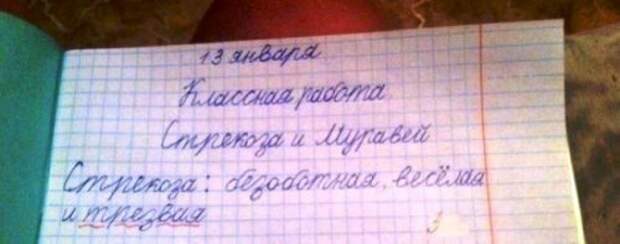 13 января
Классная работа
Стрекоза и Муравей
Стрекоза: безоботная, весёлая
и трезвия